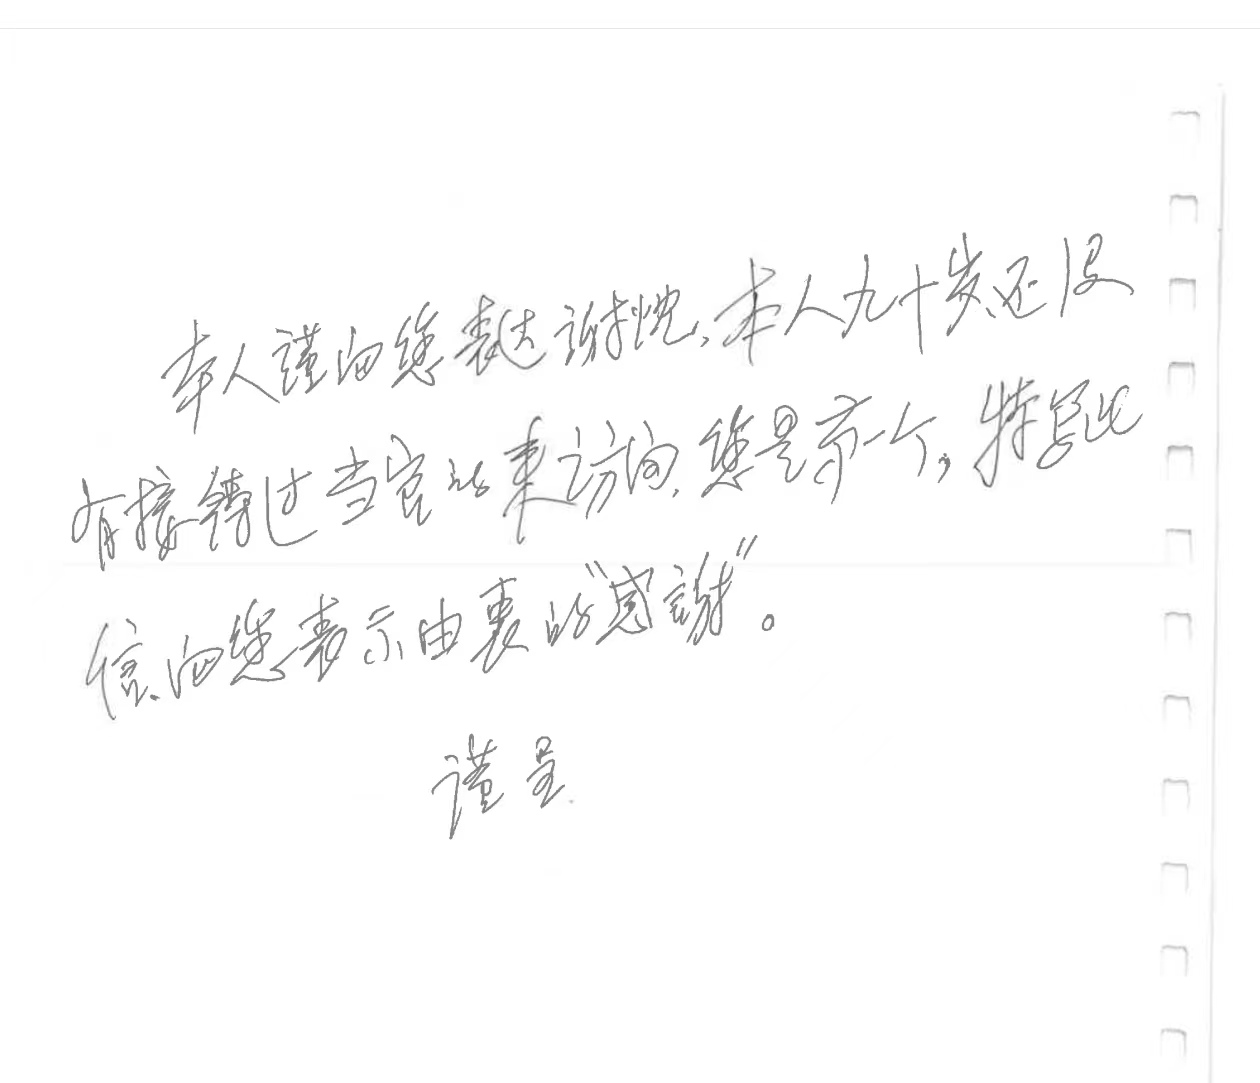 本人謹向您表达谢忱,本人九十岁还没
有接待过当官的来访问,您是第一个,特写此
信,向您表示由衷的"感謝"。
谨呈